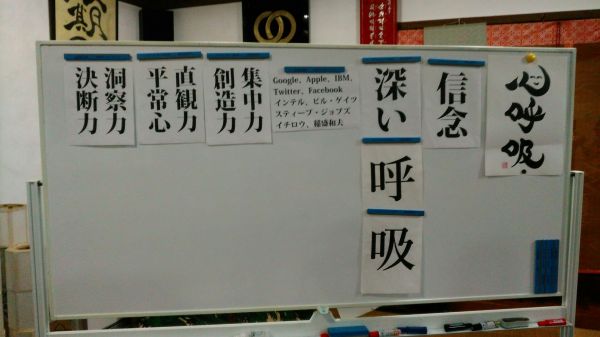 心呼吸.
信念
深い
呼
吸
Google、Apple、IBM、
Twitter、Facebook
インテル、ビル・ゲイツ
スティーブ・ジョブズ
イチロウ、稲盛和夫
集中力
創造力
直観力
平常心
洞察力
決断力